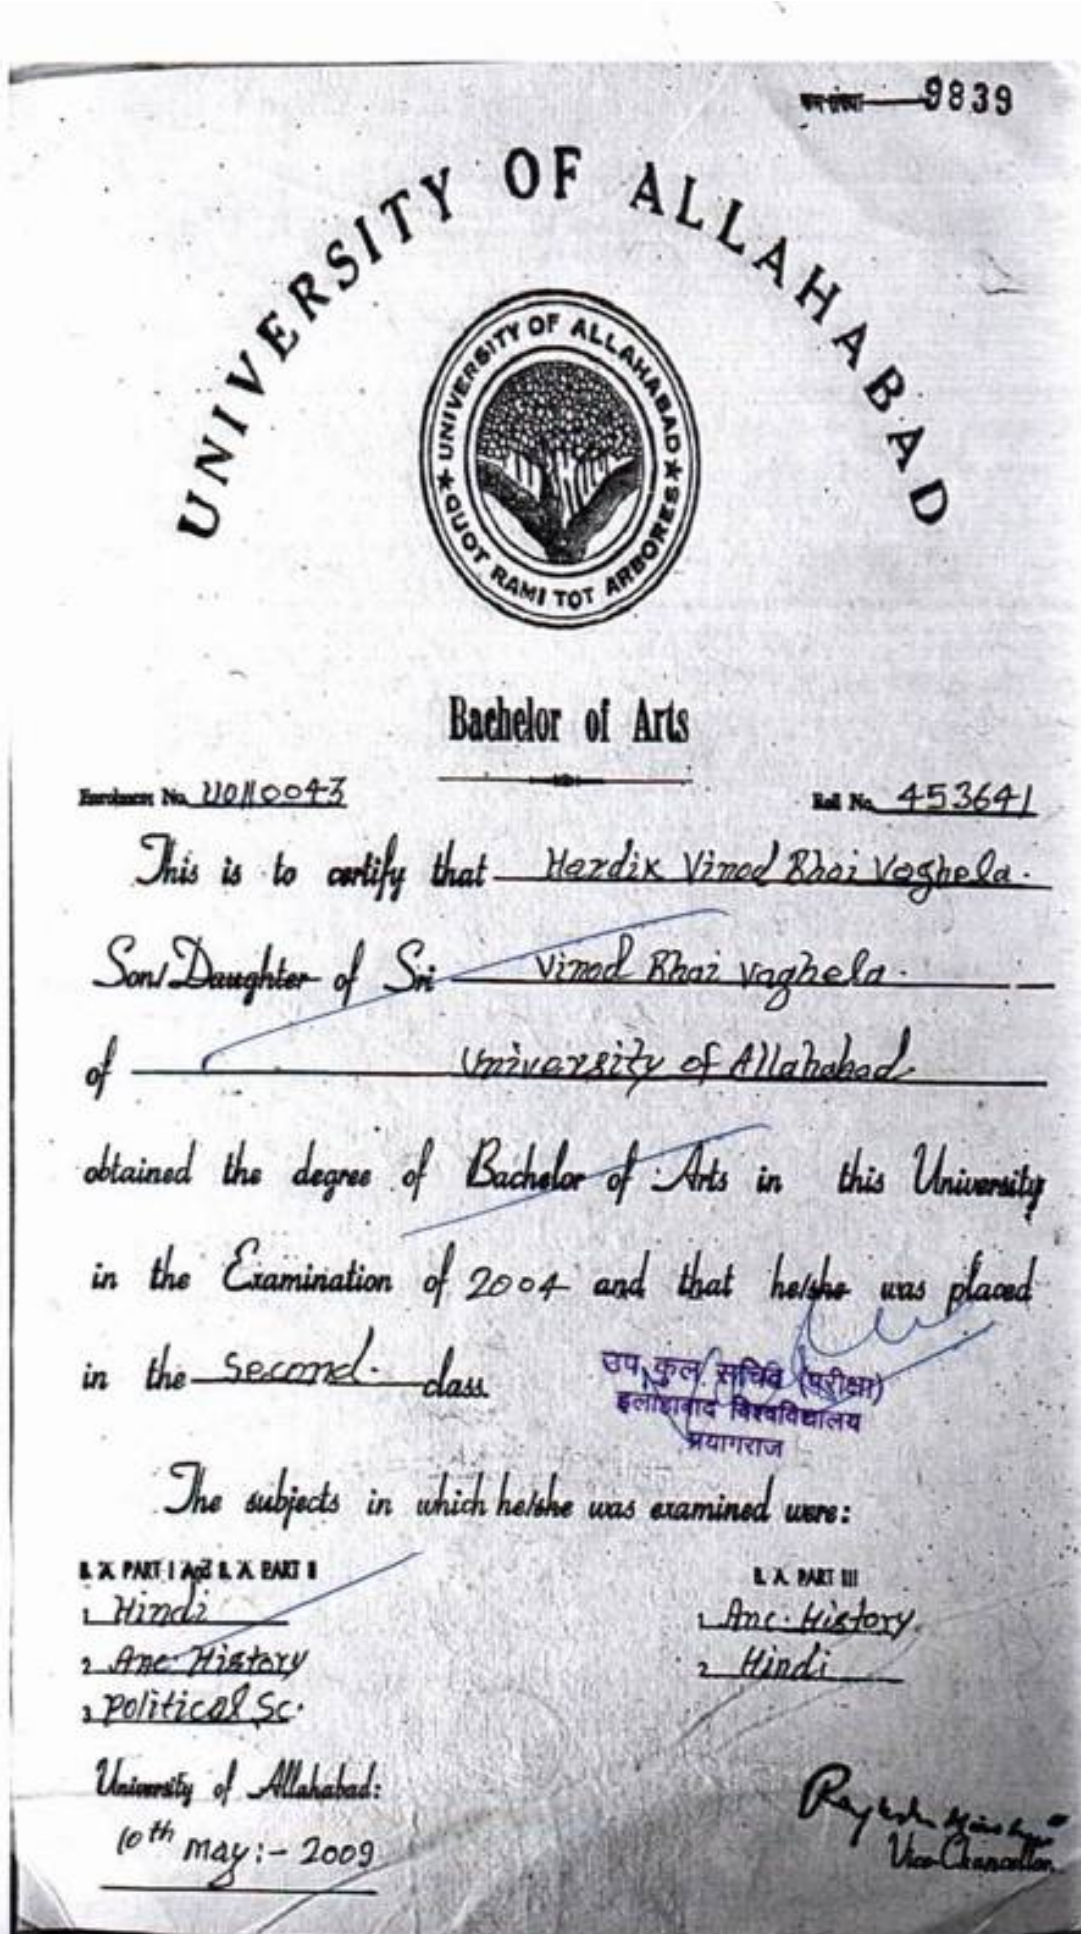 क्रम संख्या 9839
UNIVERSITY OF ALLAHABAD
UNIVERSITY OF ALLAHABAD
QUOT RAMI TOT ARBORES
Bachelor of Arts
Enrolment No. U0110043 Roll No. 453641
This is to certify that Hardik Vinod Bhai Vaghela.
Son/Daughter of Sri Vinod Bhai Vaghela.
of University of Allahabad
obtained the degree of Bachelor of Arts in this University
in the Examination of 2004 and that he/she was placed
in the Second. class.
उप कुल सचिव (परीक्षा)
इलाहाबाद विश्वविद्यालय
प्रयागराज
The subjects in which he/she was examined were:
B. A. PART I And B. A. PART II B. A. PART III
1 Hindi 1 Anc. History
2 Anc. History 2 Hindi
3 Political Sc.
University of Allahabad:
10th may:- 2009
Vice-Chancellor.